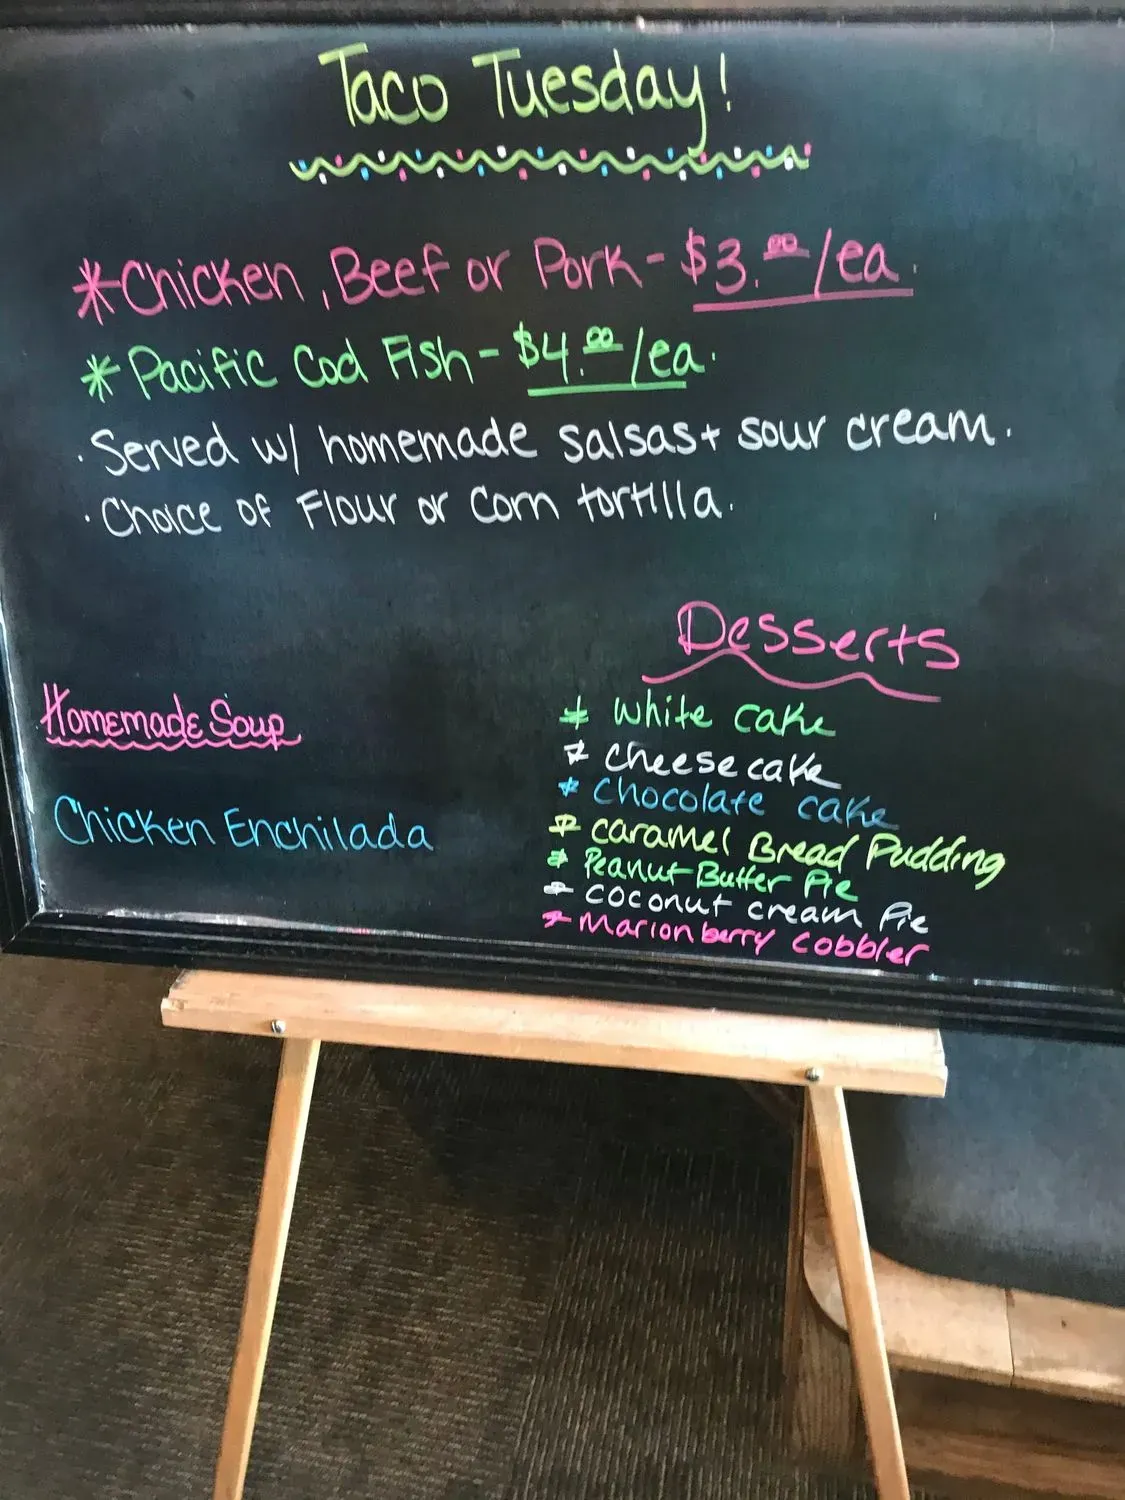 Taco Tuesday!
*Chicken, Beef or Pork - $3.00/ea.
*Pacific Cod Fish - $4.00/ea.
· Served w/ homemade salsas + sour cream.
· Choice of Flour or Corn tortilla.
Homemade Soup
Chicken Enchilada
Desserts
* white cake
* cheese cake
* chocolate cake
* caramel Bread Pudding
* Peanut Butter Pie
* coconut cream Pie
* Marionberry cobbler